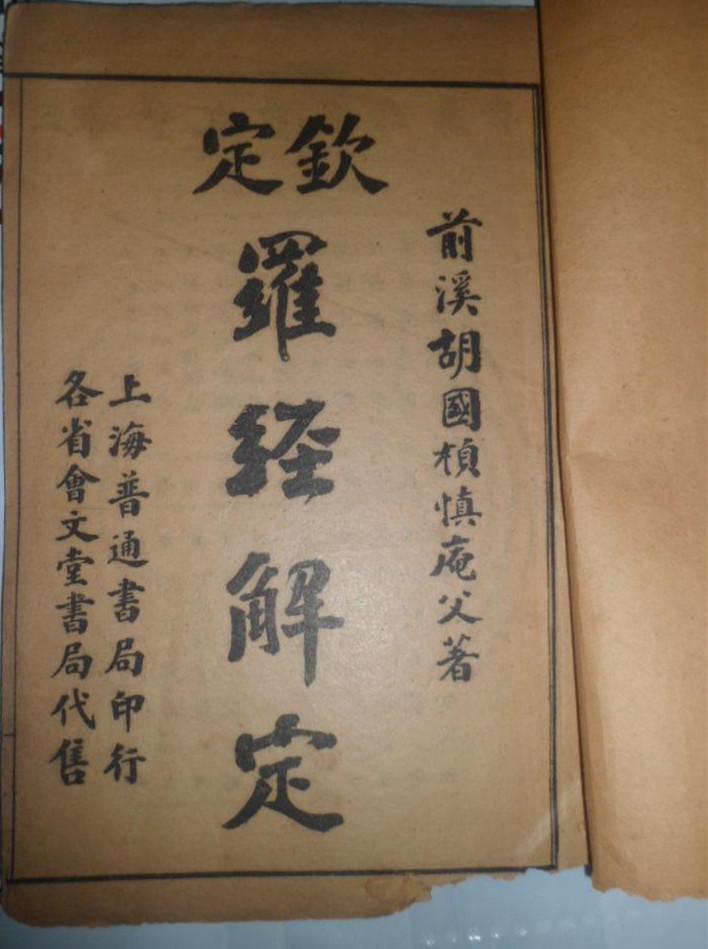 前溪胡國楨慎庵父著
欽定
羅經解定
上海普通書局印行
各省會文堂書局代售